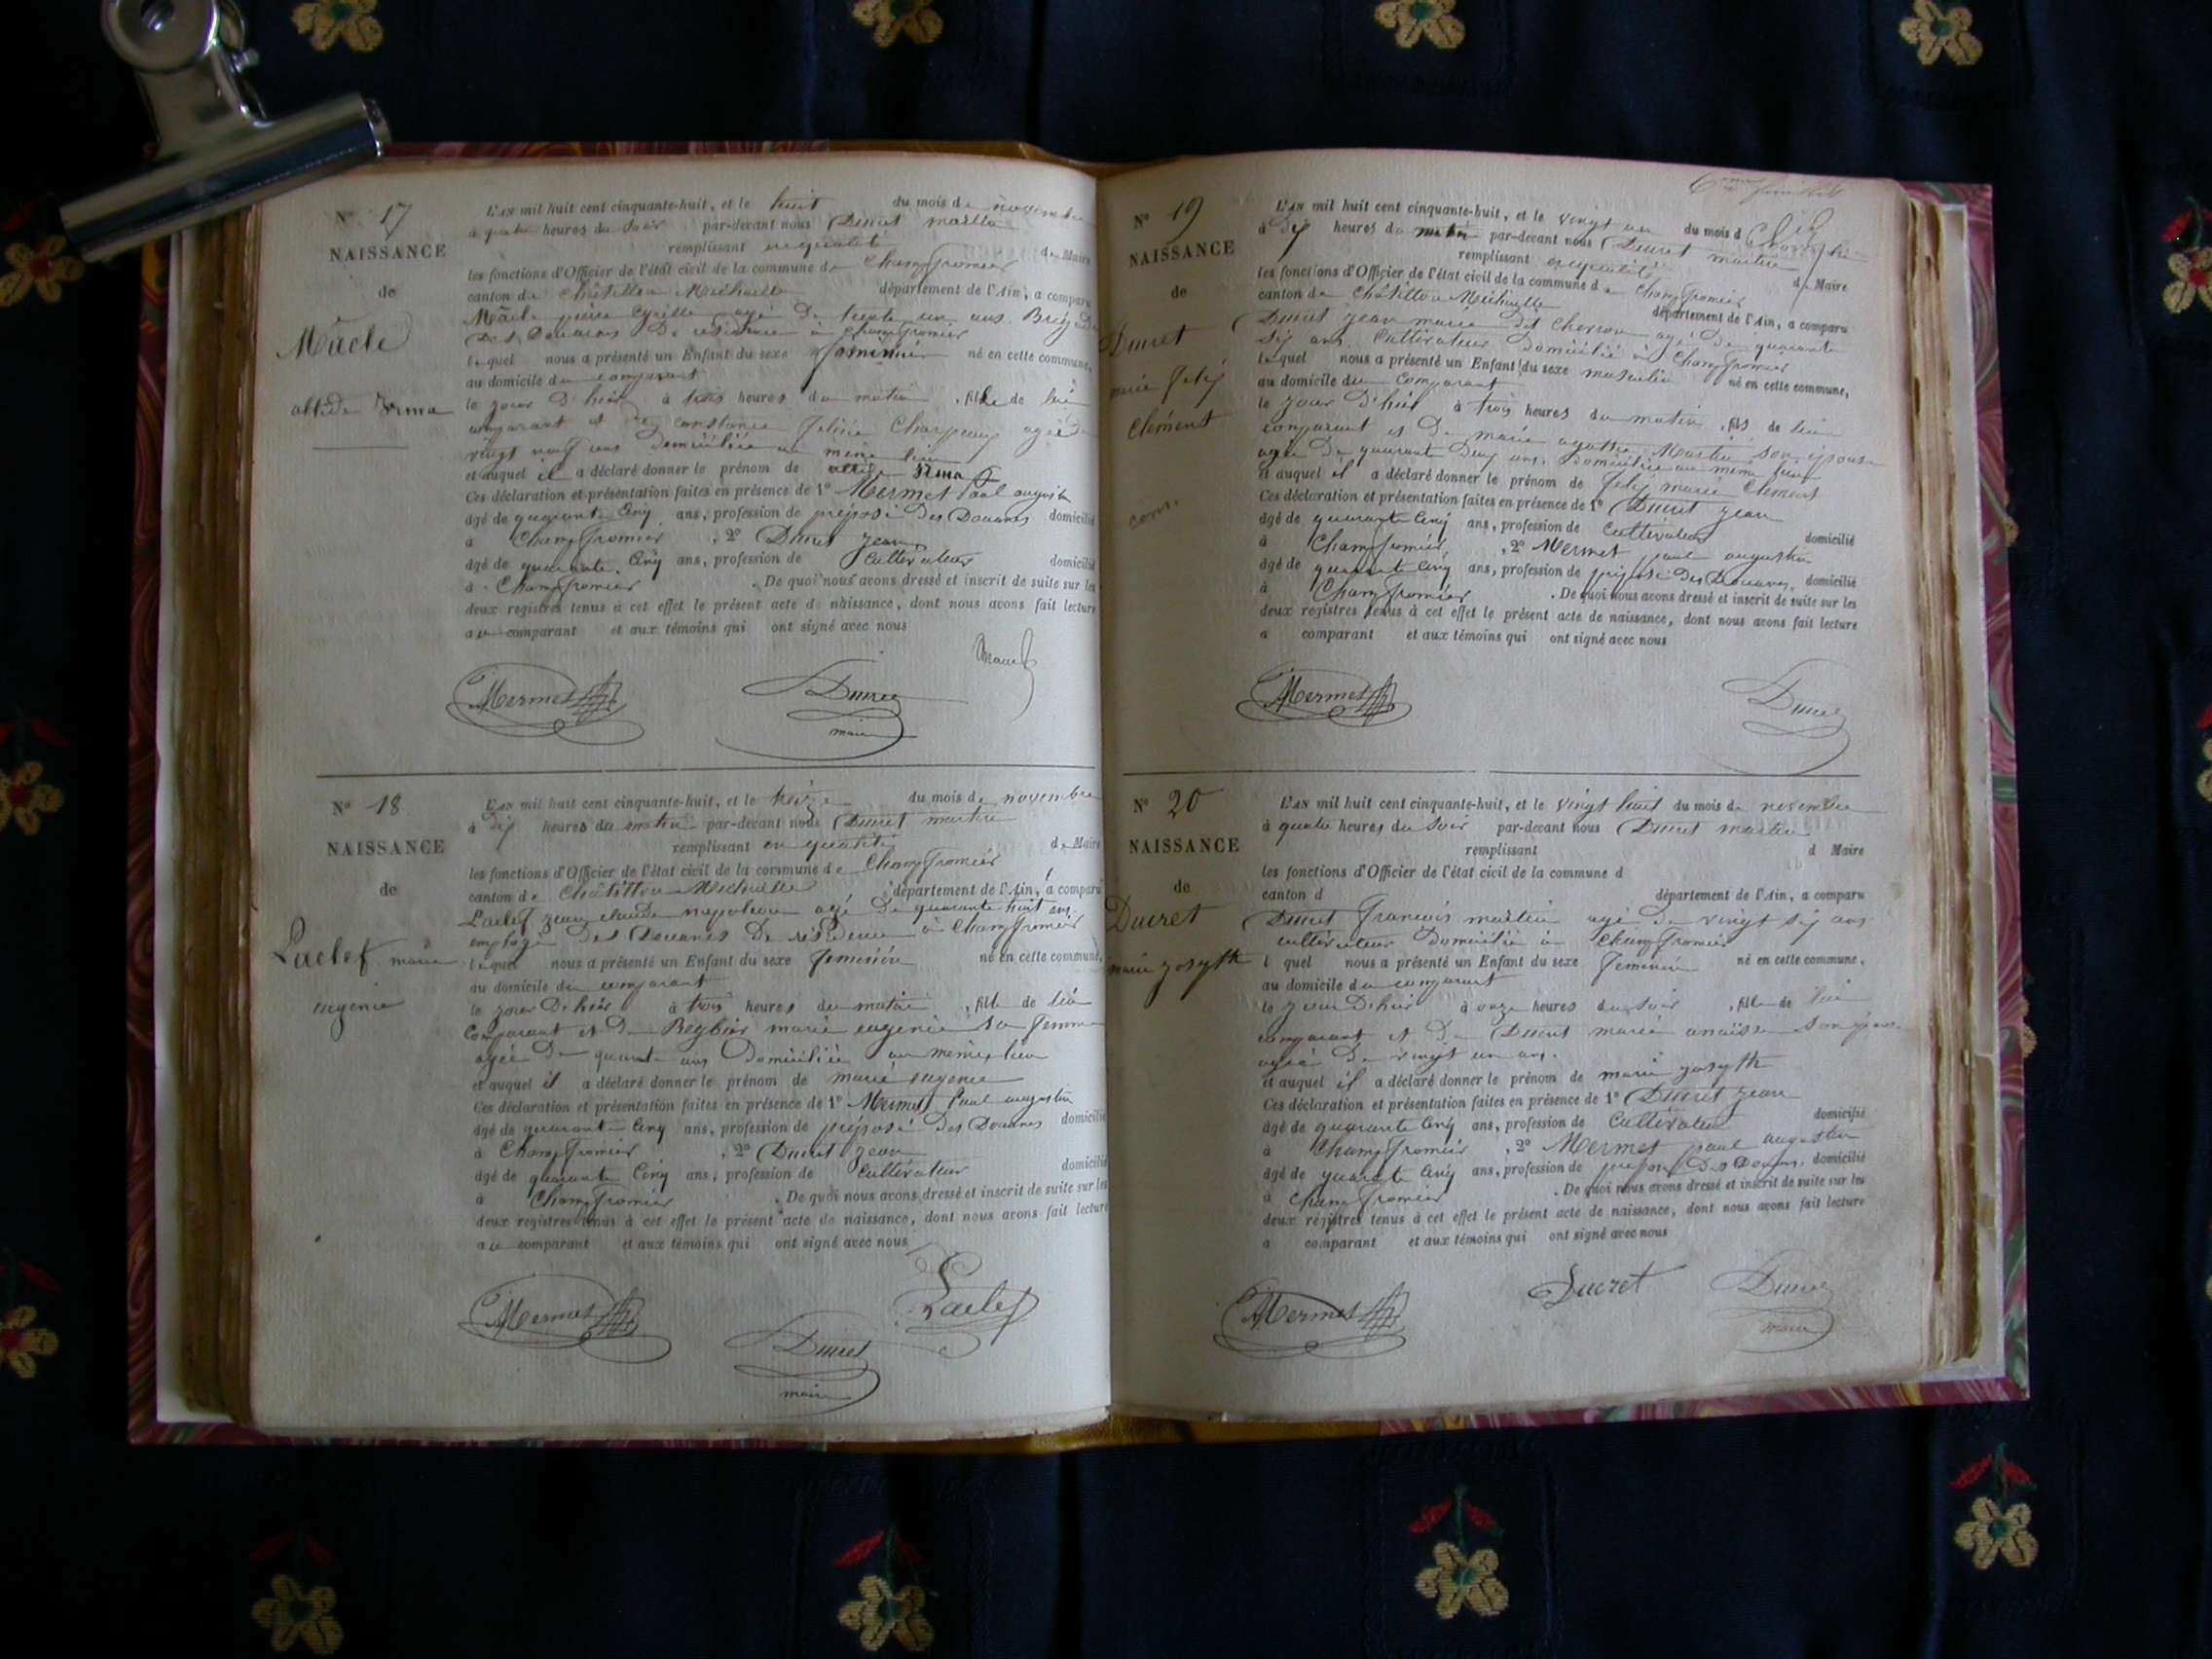 N° 17
NAISSANCE
de
Màcle
L'AN mil huit cent cinquante-huit, et le huit du mois de novembre
à quatre heures du soir par-devant nous Ducret
remplissant en qualité de Maire
les fonctions d'Officier de l'état civil de la commune de Champfromier
canton de Châtillon Michaille département de l'Ain, a comparu
Màcle pierre Cyrille agé de trente un ans. Brigadier
des Douanes de residence à Champfromier
lequel nous a présenté un Enfant du sexe feminin né en cette commune,
au domicile du comparant
le jour d'hier à trois heures du matin, fille de lui
comparant et de constance Charpeaux agée de
vingt neuf ans domiciliée au même lieu
et auquel il a déclaré donner le prénom de Irma
Ces déclaration et présentation faites en présence de 1° Mermet Paul augustin
âgé de quarante Cinq ans, profession de préposé des Douanes domicilié
à Champfromier, 2° Ducret jean
âgé de quarante Cinq ans, profession de Cultivateur domicilié
à Champfromier. De quoi nous avons dressé et inscrit de suite sur les
deux registres tenus à cet effet le présent acte de naissance, dont nous avons fait lecture
au comparant et aux témoins qui ont signé avec nous
Mermet Ducret
maire
N° 18
NAISSANCE
de
Laclef marie
eugenie
L'AN mil huit cent cinquante-huit, et le treize du mois de novembre
à dix heures du matin par-devant nous Ducret martin
remplissant en qualité de Maire
les fonctions d'Officier de l'état civil de la commune de Champfromier
canton de Châtillon Michaille département de l'Ain, a comparu
Laclef jean claude napoleon agé de quarante huit ans.
employé des Douanes de résidence à Champfromier
lequel nous a présenté un Enfant du sexe feminin né en cette commune,
au domicile du comparant
le jour d'hier à trois heures du matin, fille de lui
comparant et de marie eugenie sa femme
agée de quarante ans domiciliée au même lieu
et auquel il a déclaré donner le prénom de marie eugenie
Ces déclaration et présentation faites en présence de 1° Mermet Paul augustin
âgé de quarante Cinq ans, profession de préposé des Douanes domicilié
à Champfromier, 2° Ducret jean
âgé de quarante Cinq ans, profession de Cultivateur domicilié
à Champfromier. De quoi nous avons dressé et inscrit de suite sur les
deux registres tenus à cet effet le présent acte de naissance, dont nous avons fait lecture
au comparant et aux témoins qui ont signé avec nous
Laclef
Mermet Ducret
maire
N° 19
NAISSANCE
de
Ducret
marie felix
Clément
L'AN mil huit cent cinquante-huit, et le vingt un du mois de novembre
à dix heures du matin par-devant nous Ducret martin
remplissant en qualité de Maire
les fonctions d'Officier de l'état civil de la commune de Champfromier
canton de Châtillon Michaille département de l'Ain, a comparu
Ducret jean marie dit agé de quarante
six ans. Cultivateur domicilié à Champfromier
lequel nous a présenté un Enfant du sexe masculin né en cette commune,
au domicile du comparant
le jour d'hier à trois heures du matin, fils de lui
comparant et de marie agathe son épouse
agée de quarante deux ans. domiciliée au même lieu
et auquel il a déclaré donner le prénom de felix marie Clément
Ces déclaration et présentation faites en présence de 1° Ducret jean
âgé de quarante Cinq ans, profession de Cultivateur domicilié
à Champfromier, 2° Mermet paul augustin
âgé de quarante Cinq ans, profession de préposé des Douanes, domicilié
à Champfromier. De quoi nous avons dressé et inscrit de suite sur les
deux registres tenus à cet effet le présent acte de naissance, dont nous avons fait lecture
a comparant et aux témoins qui ont signé avec nous
Mermet Ducret
N° 20
NAISSANCE
de
Ducret
marie josepth
L'AN mil huit cent cinquante-huit, et le vingt huit du mois de novembre
à quatre heures du soir par-devant nous Ducret martin
remplissant d Maire
les fonctions d'Officier de l'état civil de la commune d
canton d département de l'Ain, a comparu
Ducret francois martin agé de vingt six ans
cultivateur domicilié à Champfromier
l quel nous a présenté un Enfant du sexe feminin né en cette commune,
au domicile du comparant
le jour d'hier à onze heures du soir, fille de lui
comparant et de Ducret marie
agée de vingt un ans.
et auquel il a déclaré donner le prénom de marie josepth
Ces déclaration et présentation faites en présence de 1° Ducret jean
âgé de quarante Cinq ans, profession de Cultivateur domicilié
à Champfromier, 2° Mermet paul augustin
âgé de quarante Cinq ans, profession de préposé des Douanes. domicilié
à Champfromier. De quoi nous avons dressé et inscrit de suite sur les
deux registres tenus à cet effet le présent acte de naissance, dont nous avons fait lecture
a comparant et aux témoins qui ont signé avec nous
Mermet Ducret Ducret
maire